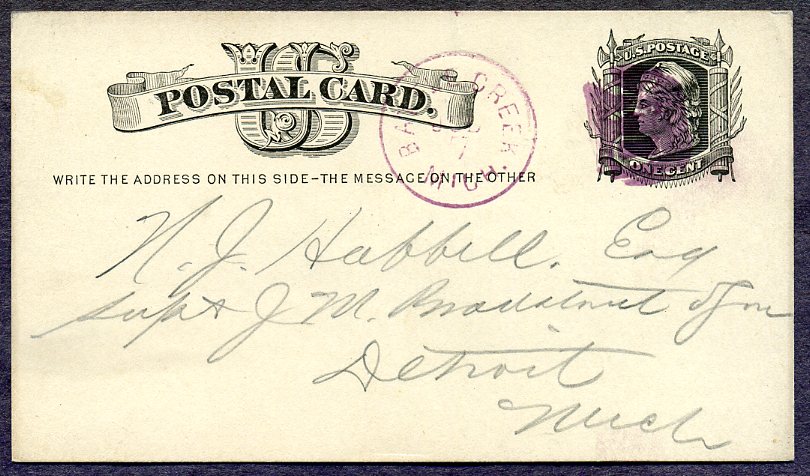 US
POSTAL CARD.
U.S. POSTAGE
ONE CENT
CREEK
MICH.
WRITE THE ADDRESS ON THIS SIDE-THE MESSAGE ON THE OTHER
N. J. Habbell. Esq
Supt J. M. Bradstreet & Son
Detroit
Mich